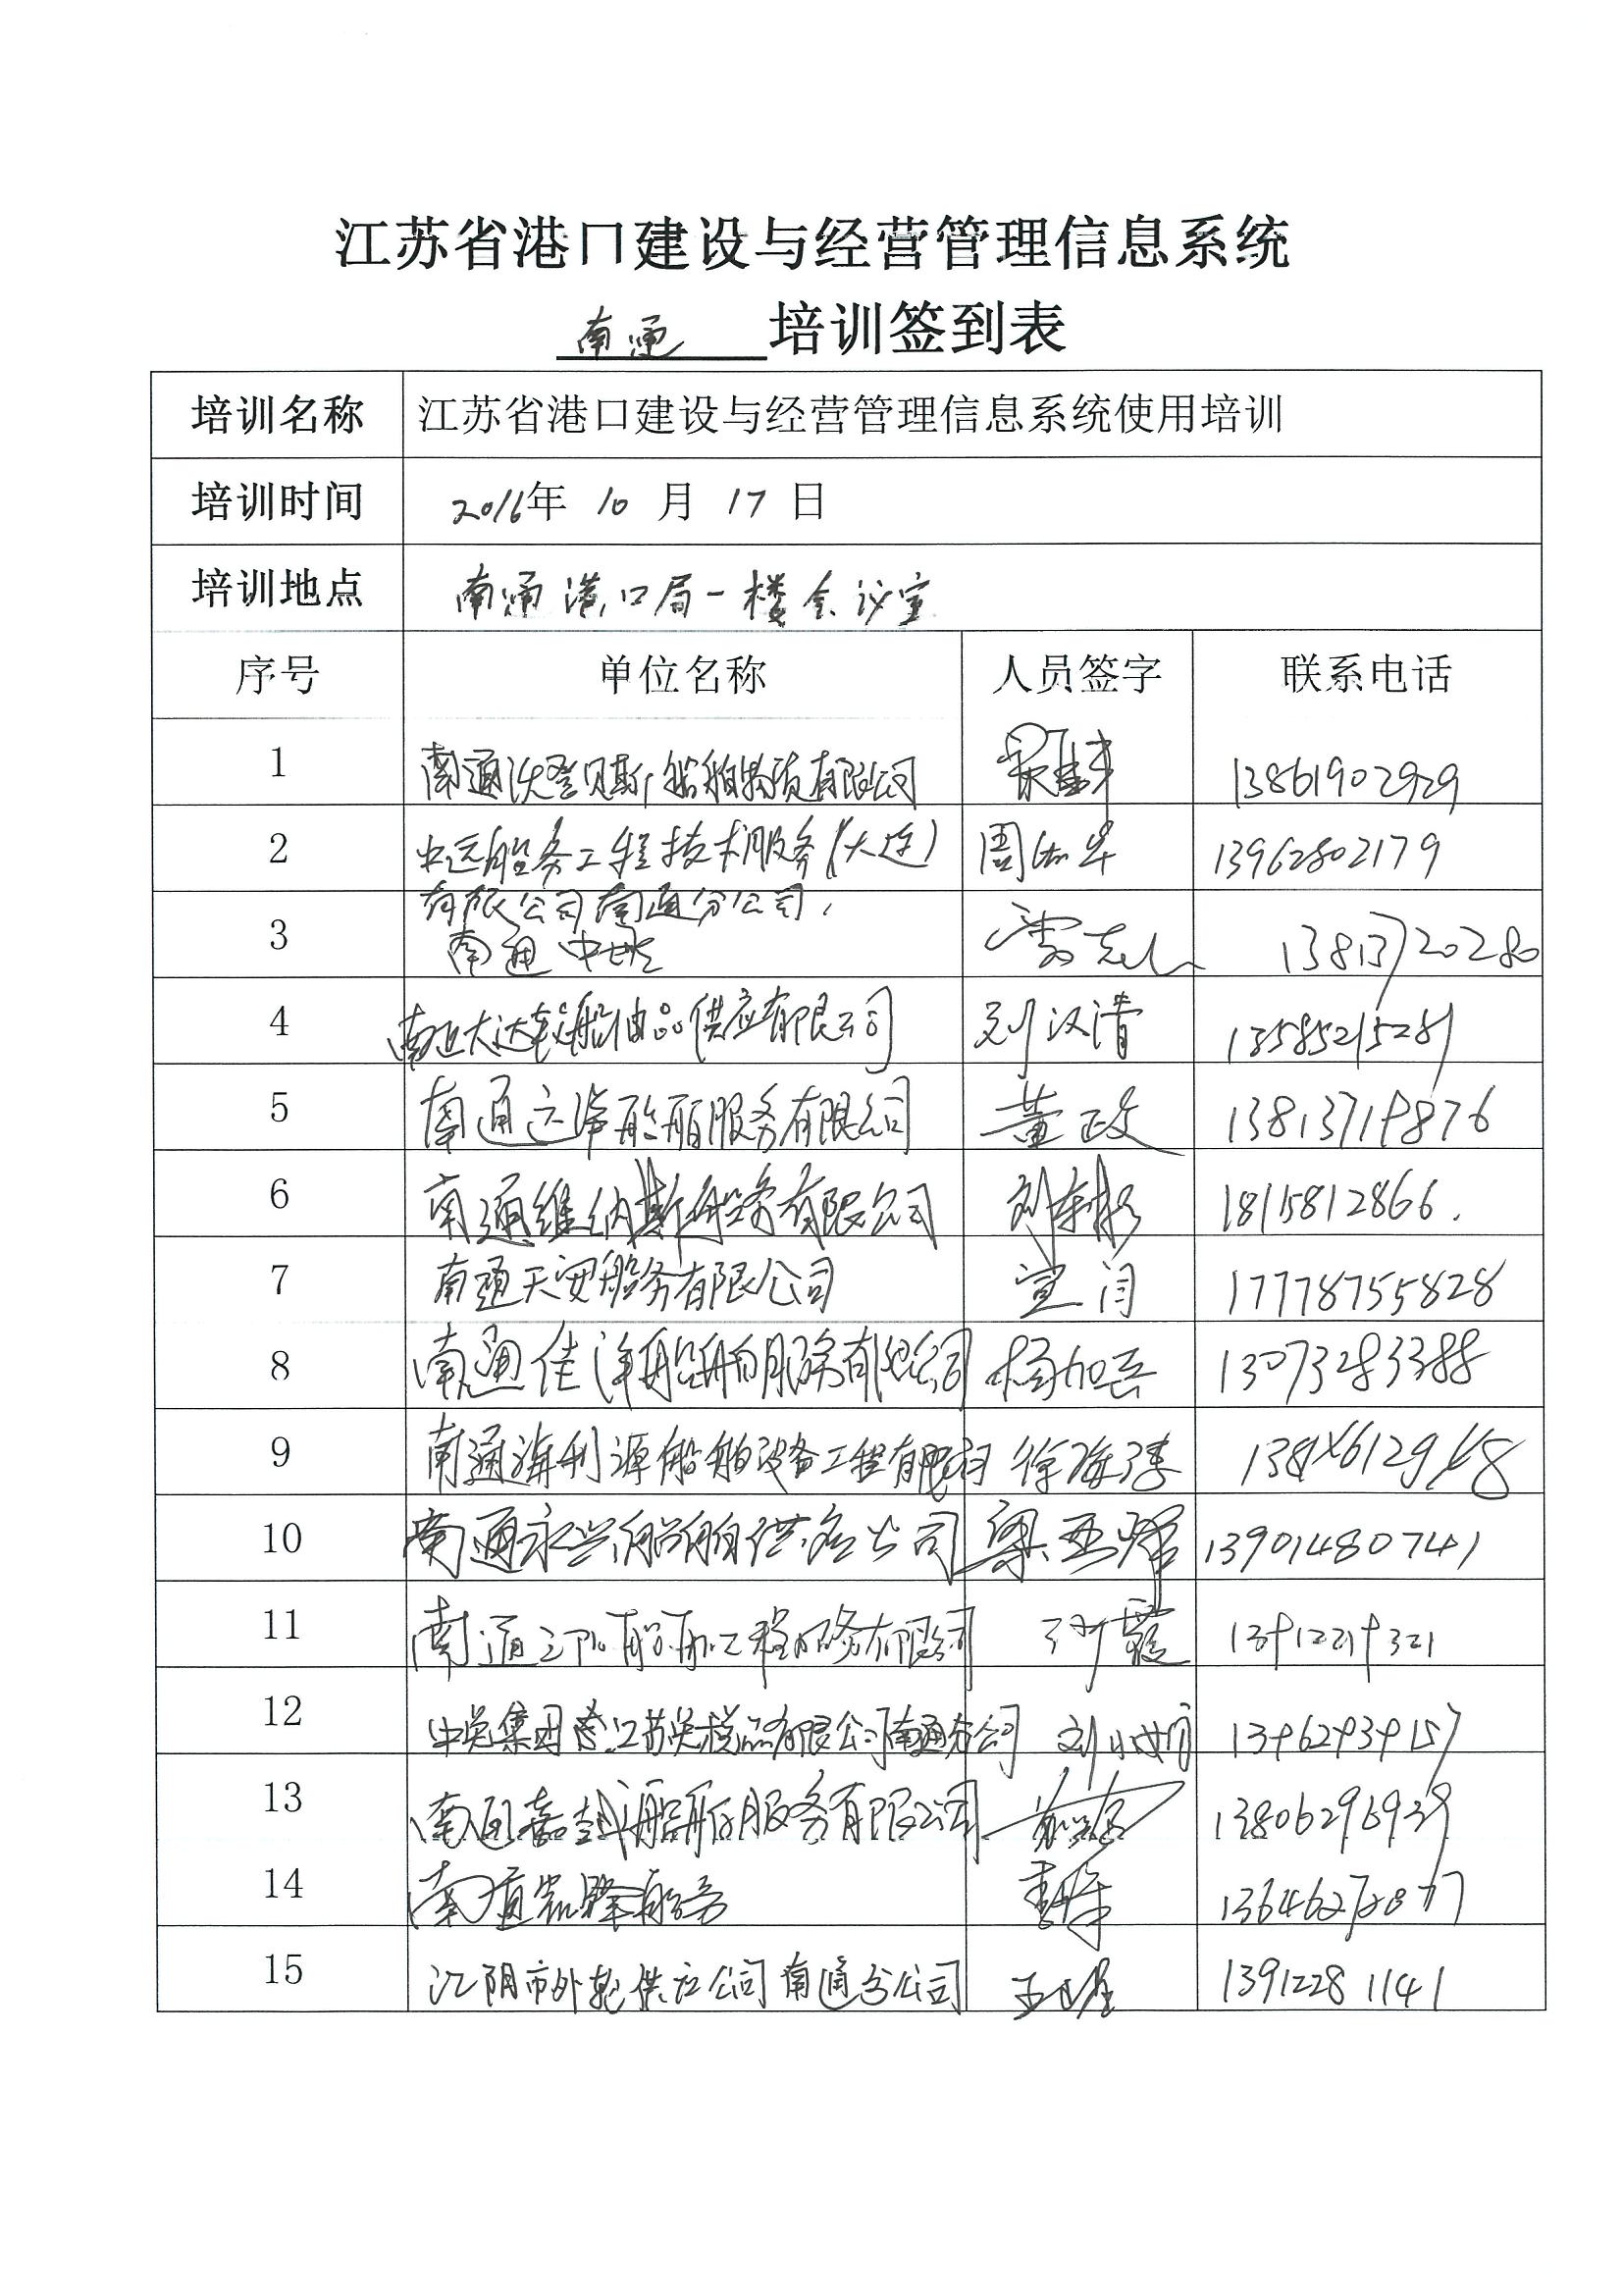 江苏省港口建设与经营管理信息系统
南通 培训签到表
培训名称 江苏省港口建设与经营管理信息系统使用培训
培训时间 2016年 10 月 17 日
培训地点 南通港口局一楼会议室
序号 单位名称 人员签字 联系电话
1 南通沃登贝斯船舶物资有限公司 13861902929
2 中远船务工程技术服务(大连) 周 华 13962802179
有限公司南通分公司
3 南通中 13813720280
4 南通大达轮船油品供应有限公司 刘汉清 13585215281
5 南通远洋船舶服务有限公司 董政 13813719876
6 南通维纳斯船务有限公司 刘 18115812866.
7 南通天安船务有限公司 宣闫 17778755828
8 南通佳洋船舶服务有限公司 杨加兵 13073283388
9 南通海利源船舶设备工程有限公司 徐海
10 南通永兴船舶供应公司 梁亚辉 13901480741
11 南通 船舶工程服务有限公司 孙霞 13912219321
12 中免集团 江苏免税品有限公司南通分公司 刘 13962939157
13 南通嘉 船舶服务有限公司 13806296939
14 南通凯隆船务
15 江阴市外轮供应公司南通分公司 王 13912281141